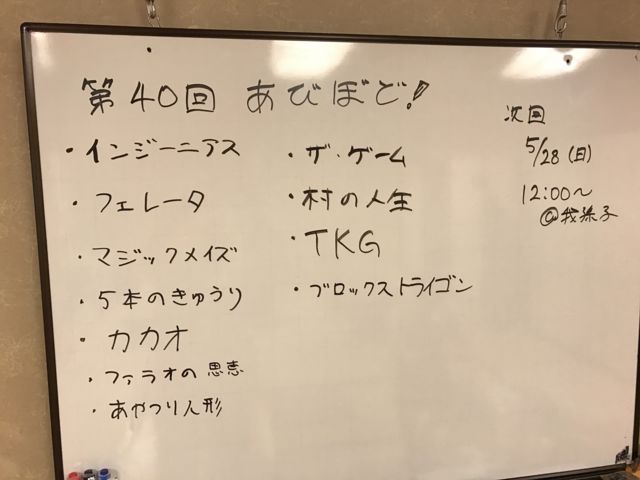 第40回 あびぼど!
・インジーニアス
・フェレータ
・マジックメイズ
・5本のきゅうり
・カカオ
・ファラオの恩恵
・あやつり人形
・ザ・ゲーム
・村の人生
・TKG
・ブロックストライゴン
次回
5/28(日)
12:00〜
@我孫子